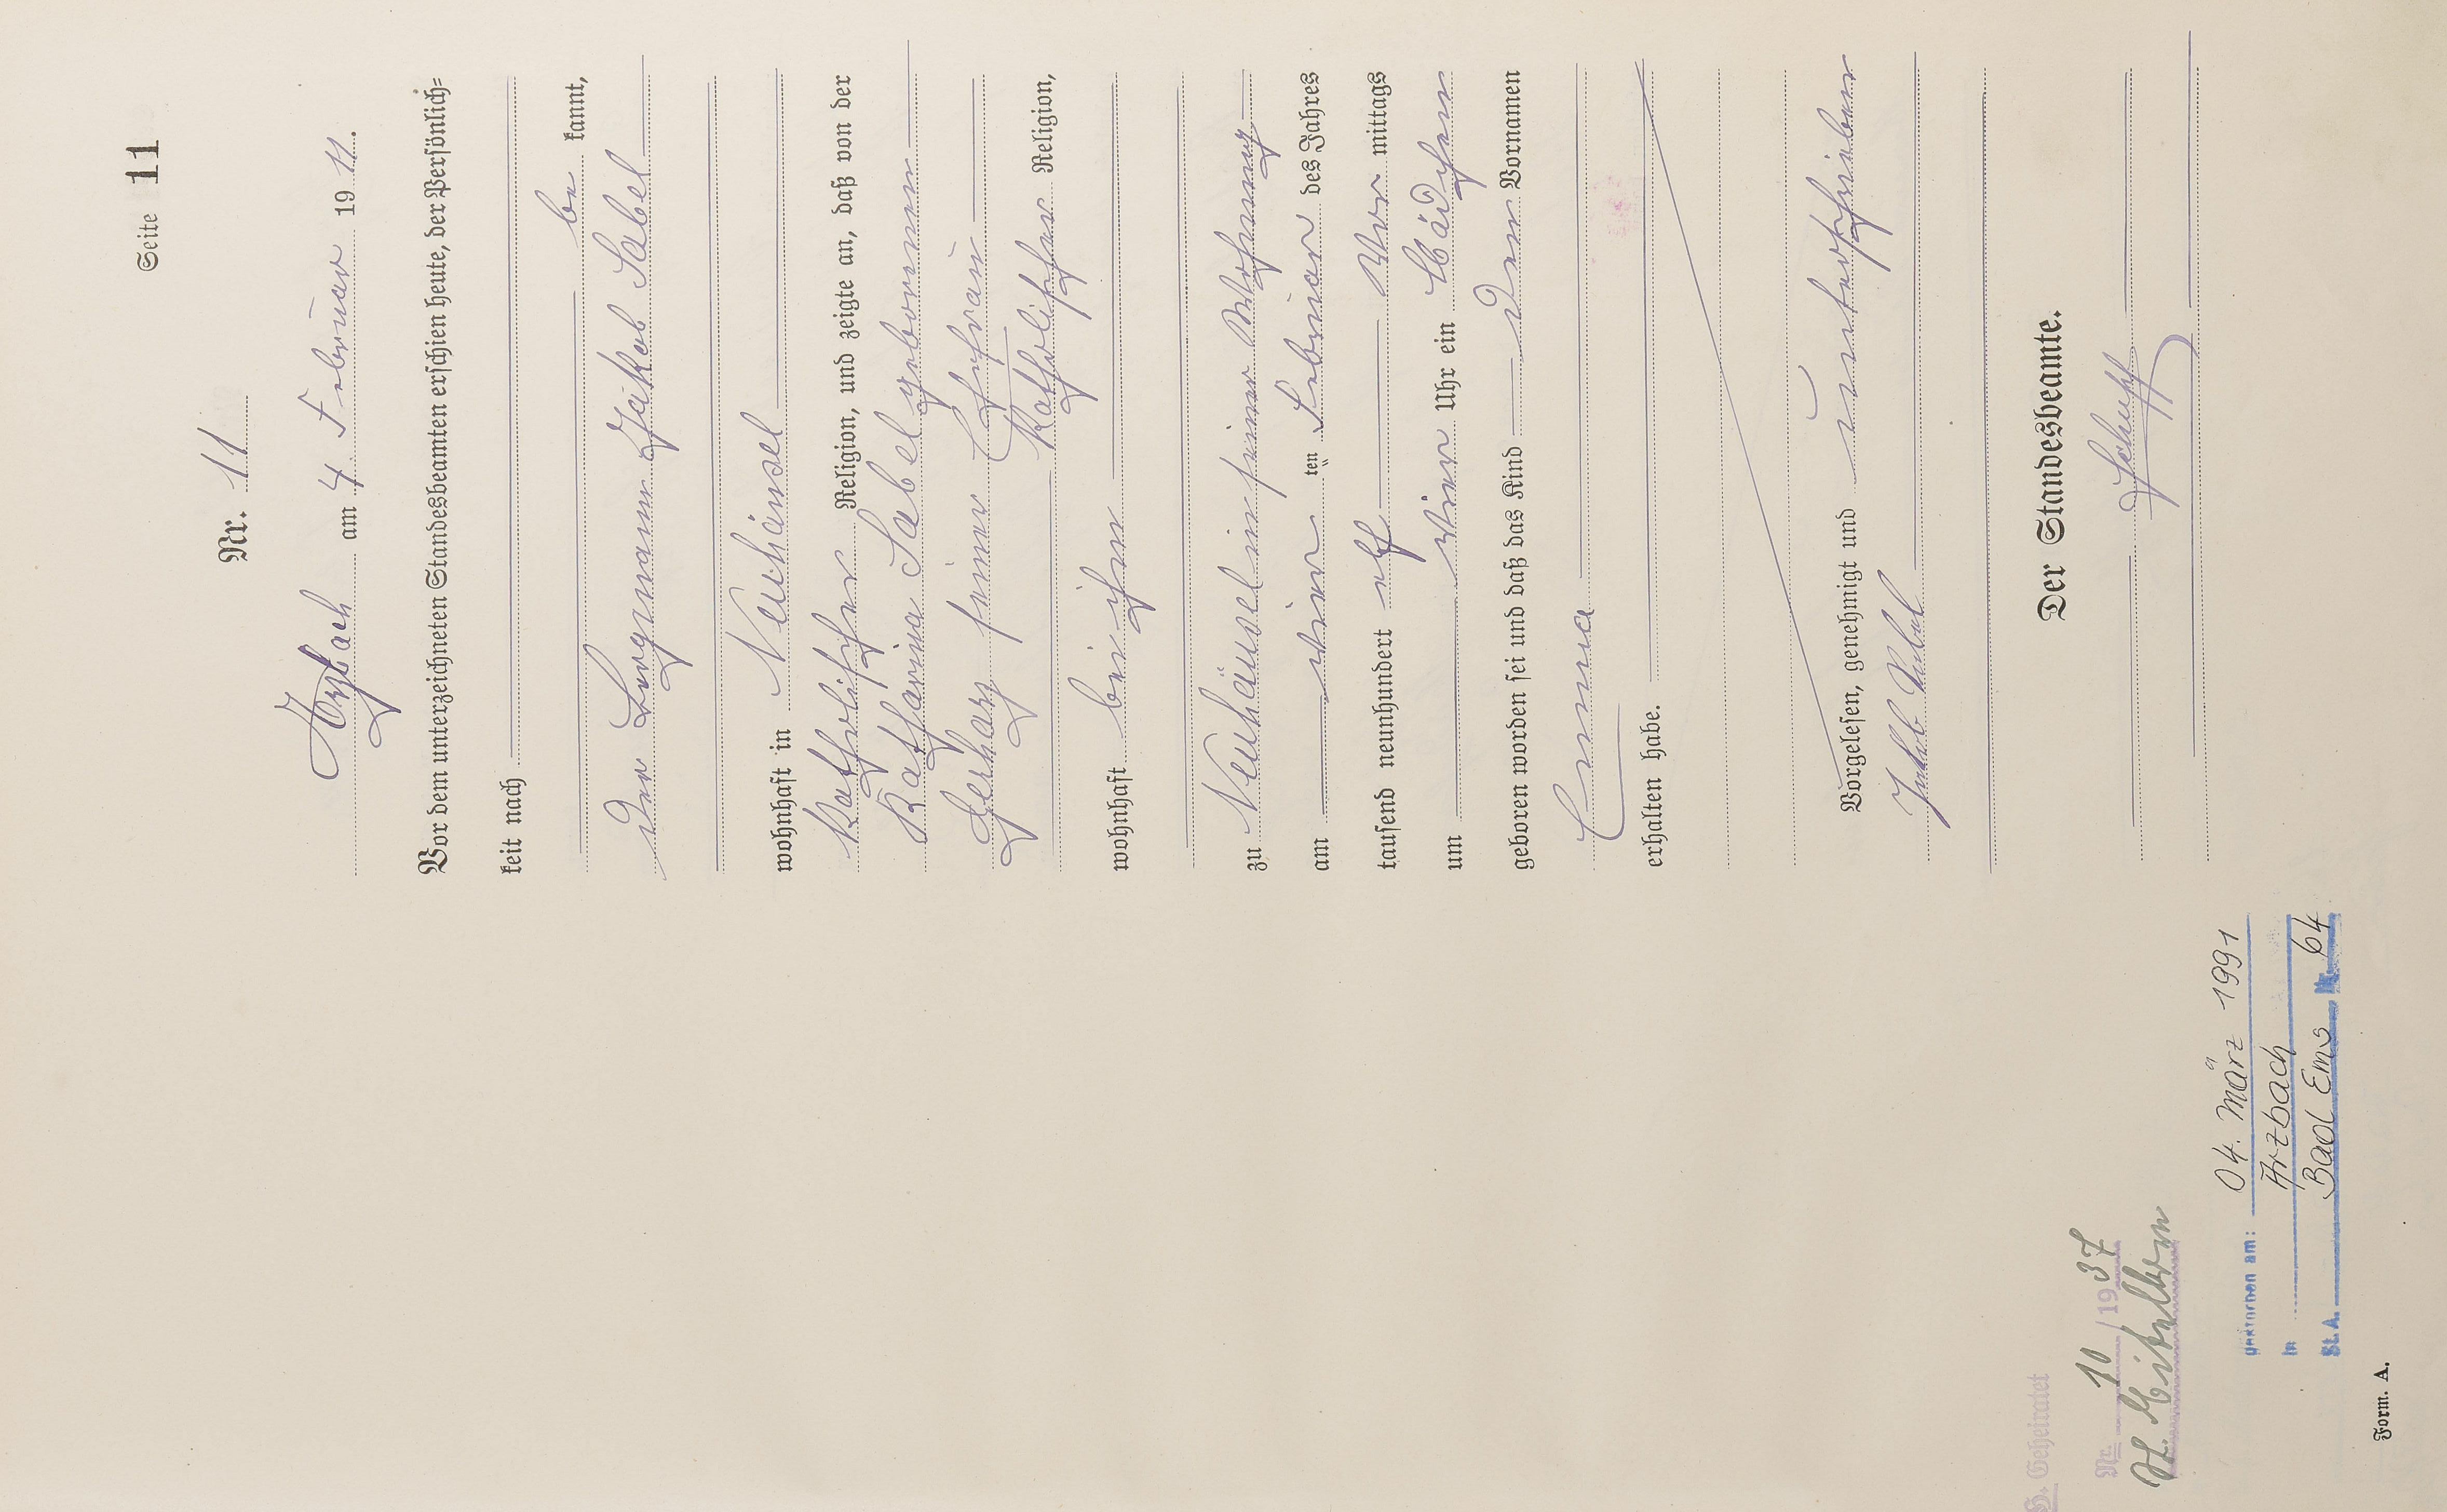 Seite 11
Nr. 11
Arzbach am 4. Februar 1911.
Vor dem unterzeichneten Standesbeamten erschien heute, der Persönlich=
keit nach
be kannt,
der Bergmann Jakob Sabel
wohnhaft in Neuhäusel
Katholischer Religion, und zeigte an, daß von der
Katharina Sabel geborenen
Gerharz seiner Ehefrau
Katholischer Religion,
wohnhaft bei ihm
zu Neuhäusel in seiner Wohnung
am vier ten Februar des Jahres
tausend neunhundert elf Vor mittags
um vier Uhr ein Mädchen
geboren worden sei und daß das Kind den Vornamen
Emma
erhalten habe.
Vorgelesen, genehmigt und unterschrieben
Jakob Sabel
Der Standesbeamte.
G. Geheiratet
Nr. 10 / 1937
gestorben am: 04. März 1991
in Arzbach
St.A. Bad Ems Nr. 64
Form. A.